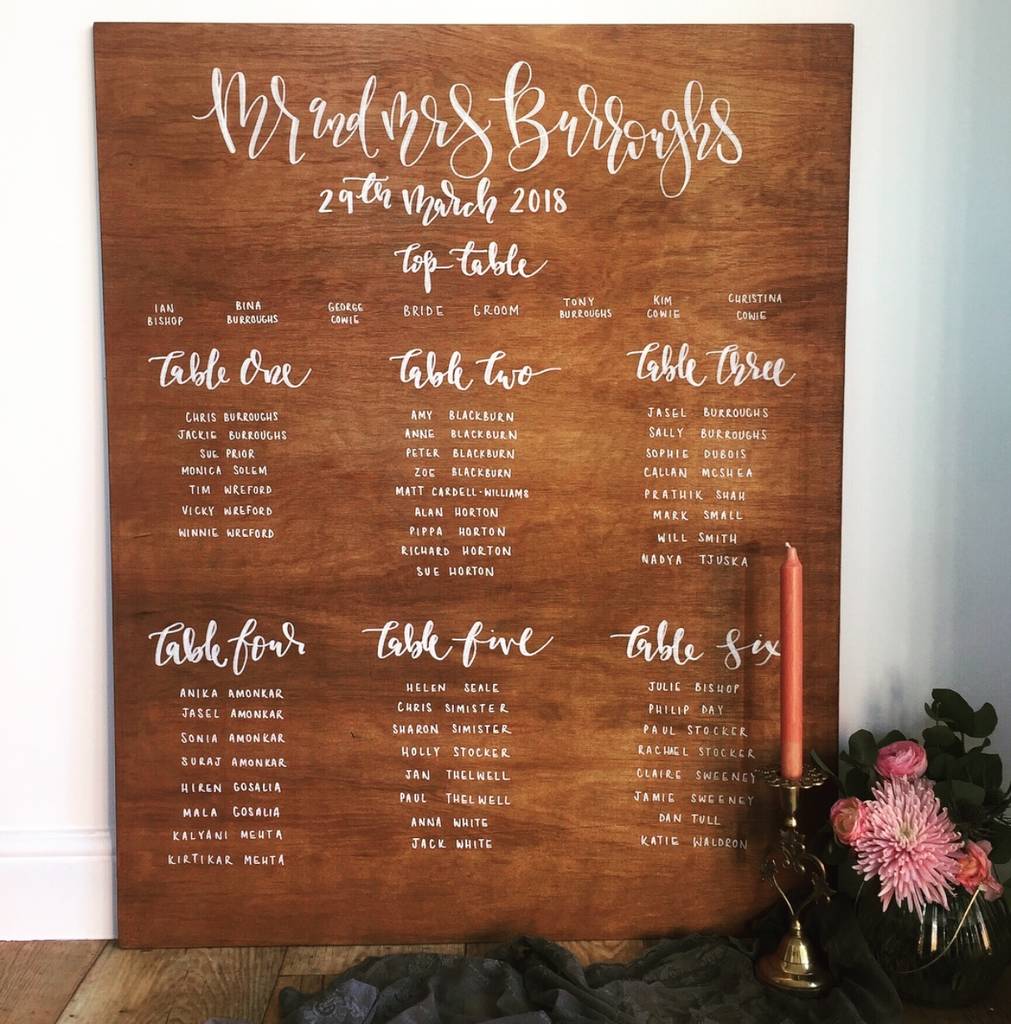 Mr and Mrs Burroughs
29th March 2018
Top table
IAN BISHOP
BINA BURROUGHS
GEORGE COWIE
BRIDE
GROOM
TONY BURROUGHS
KIM COWIE
CHRISTINA COWIE
Table One
CHRIS BURROUGHS
JACKIE BURROUGHS
SUE PRIOR
MONICA SOLEM
TIM WREFORD
VICKY WREFORD
WINNIE WREFORD
Table Two
AMY BLACKBURN
ANNE BLACKBURN
PETER BLACKBURN
ZOE BLACKBURN
MATT CARDELL-WILLIAMS
ALAN HORTON
PIPPA HORTON
RICHARD HORTON
SUE HORTON
Table Three
JASEL BURROUGHS
SALLY BURROUGHS
SOPHIE DUBOIS
CALLAN MCSHEA
PRATHIK SHAH
MARK SMALL
WILL SMITH
NADYA TJUSKA
Table four
ANIKA AMONKAR
JASEL AMONKAR
SONIA AMONKAR
SURAJ AMONKAR
HIREN GOSALIA
MALA GOSALIA
KALYANI MEHTA
KIRTIKAR MEHTA
Table five
HELEN SEALE
CHRIS SIMISTER
SHARON SIMISTER
HOLLY STOCKER
JAN THELWELL
PAUL THELWELL
ANNA WHITE
JACK WHITE
Table Six
JULIE BISHOP
PHILIP DAY
PAUL STOCKER
RACHAEL STOCKER
CLAIRE SWEENEY
JAMIE SWEENEY
DAN TULL
KATIE WALDRON